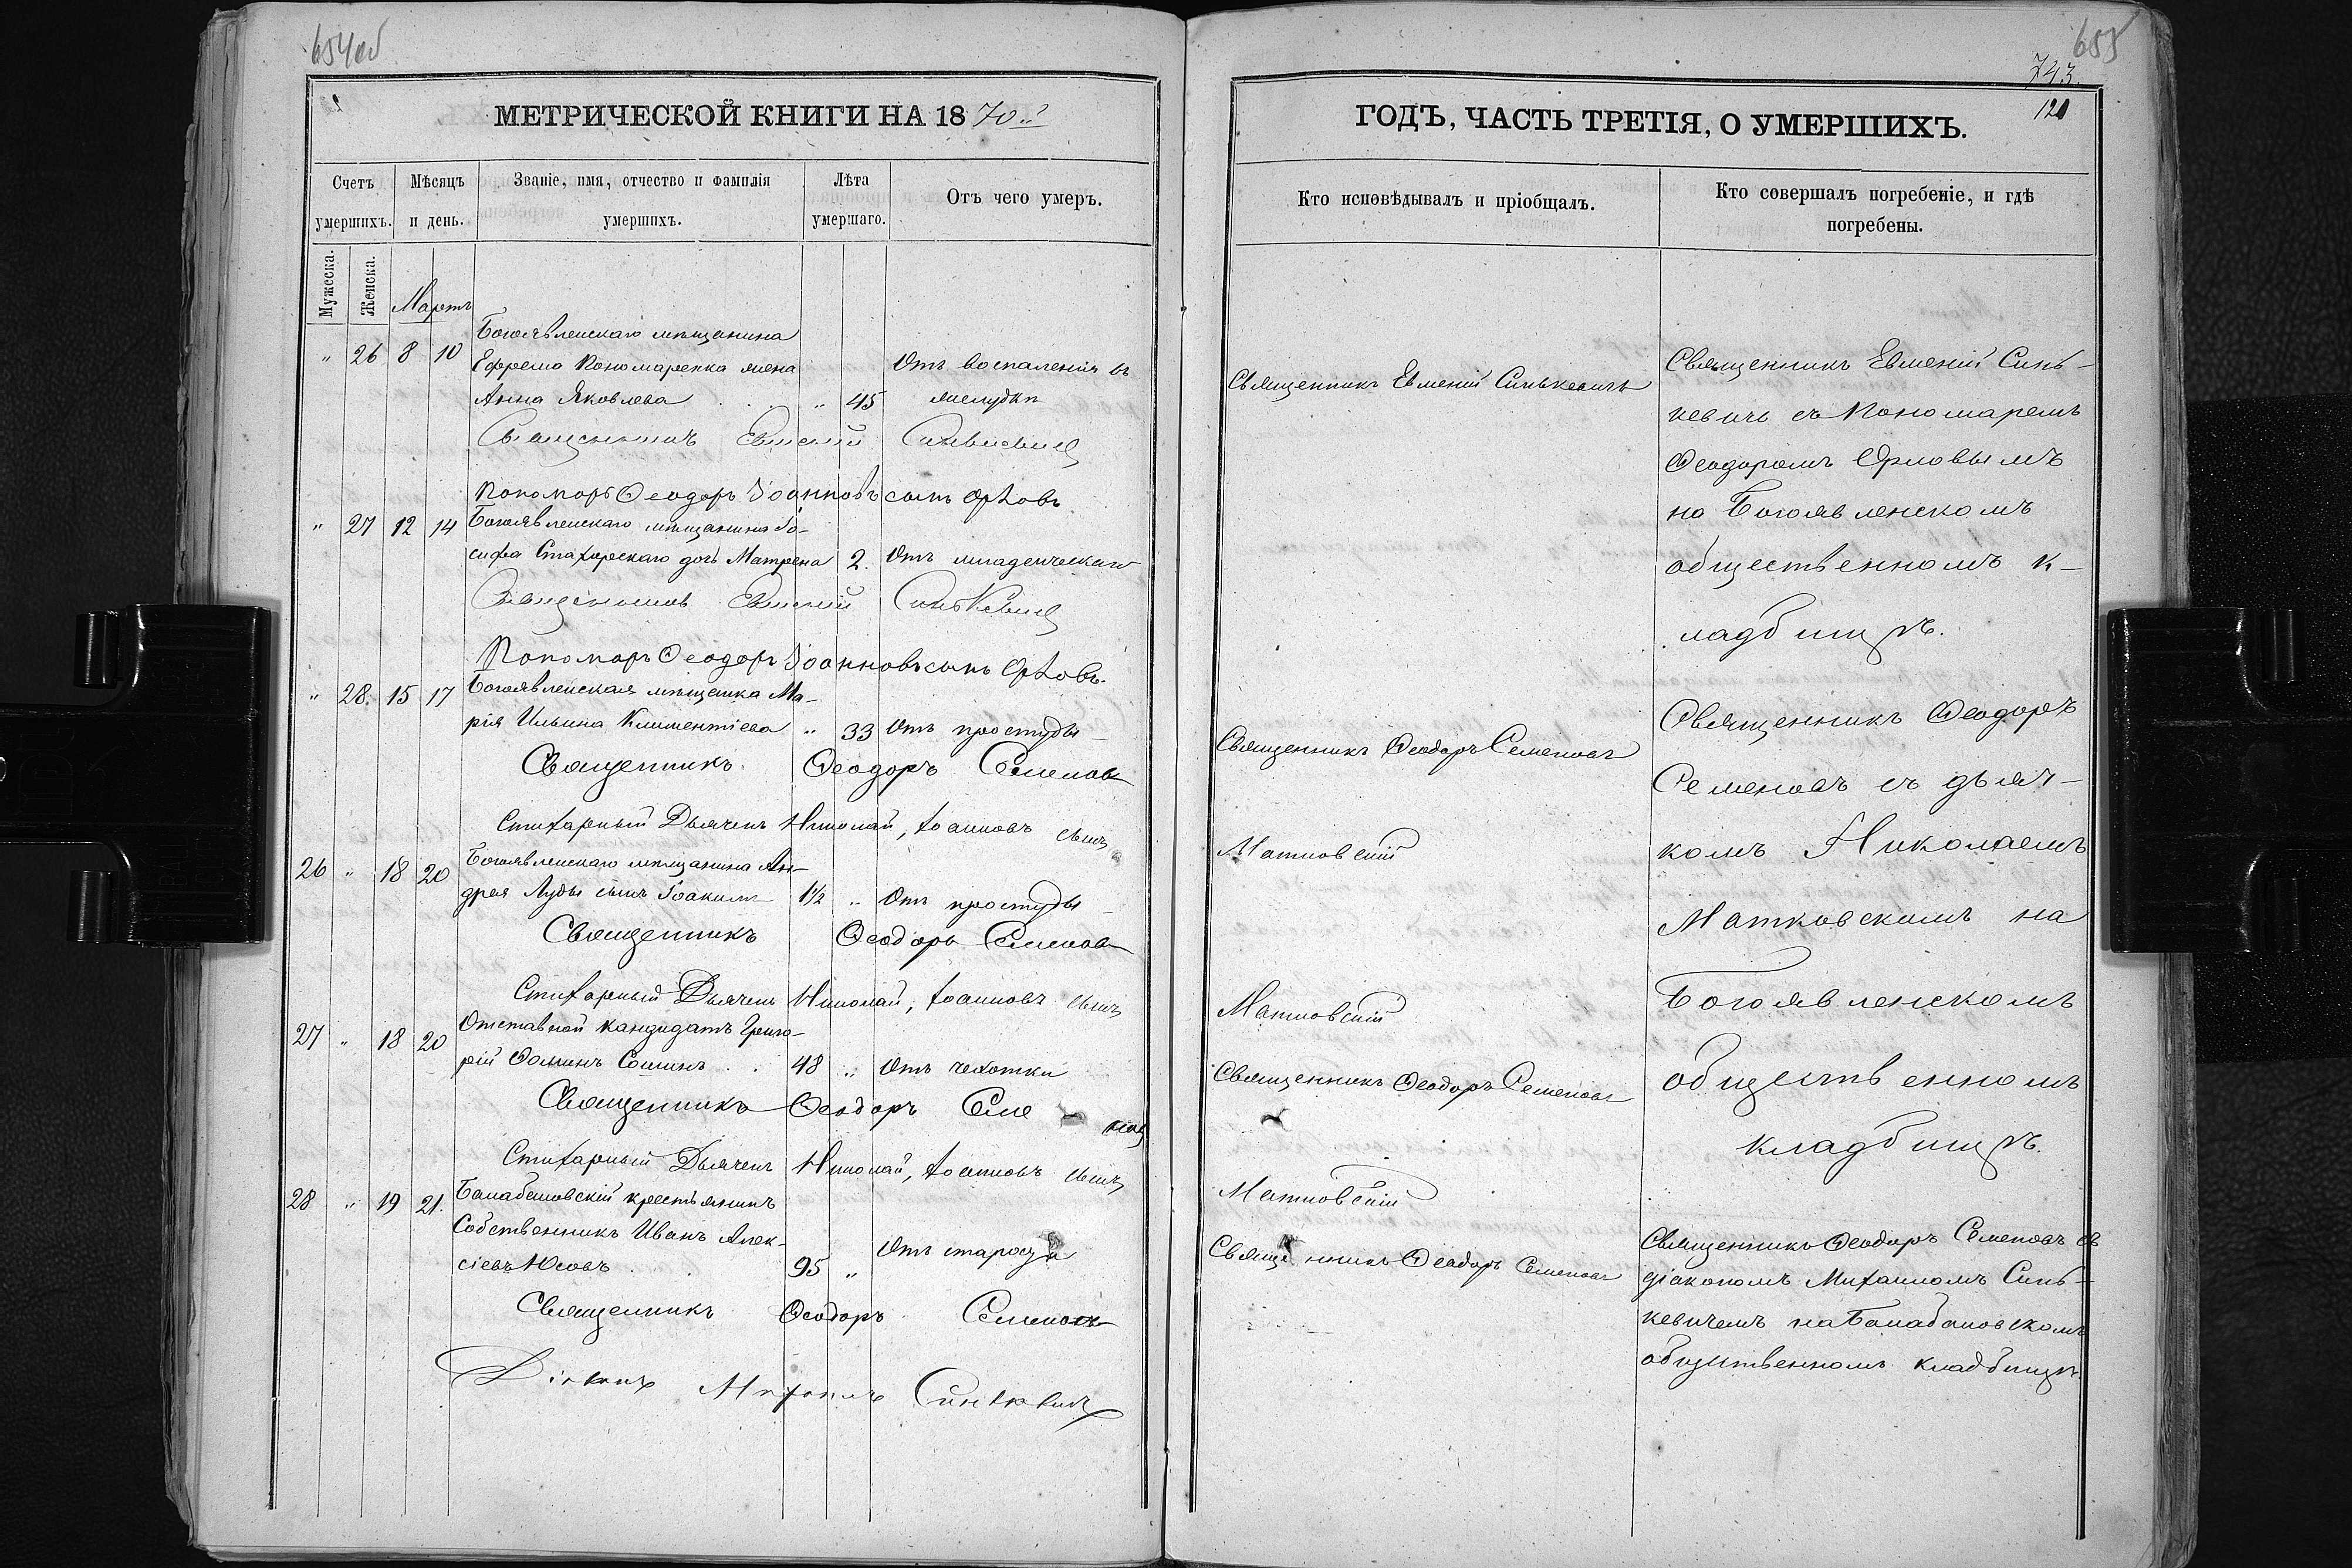 654об
МЕТРИЧЕСКОЙ КНИГИ НА 1870й
Счетъ умершихъ.
Мѣсяцъ и день.
Званіе, имя, отчество и фамилія умершихъ.
Лѣта умершаго.
Отъ чего умеръ.
Мужеска.
Женска.
Мартъ
Богоявленскаго мѣщанина
" 26 8 10 Ефрема Пономаренка жена Отъ воспаленія въ
Анна Яковлева " 45 желудкѣ
Священникъ Евменій Синькевичъ
Пономарь Ѳеодоръ Іоанновъ сынъ Орловъ
" 27 12 14 Богоявленскаго мѣщанина Іо-
сифа дочь Матрена 2. Отъ младенческой
Священникъ Евменій Синькевичъ
Пономарь Ѳеодоръ Іоанновъ сынъ Орловъ.
" 28. 15 17 Богоявленская мѣщанка Ма-
рія Ильина Климентіева " 33 Отъ простуды
Священникъ Ѳеодоръ Семеновъ
Стихарный Дьячекъ Николай, Іоанновъ сынъ
26 " 18 20 Богоявленскаго мѣщанина Ан-
дрея Луды сынъ Іоакимъ 1½ " Отъ простуды
Священникъ Ѳеодоръ Семеновъ
Стихарный Дьячекъ Николай, Іоанновъ сынъ
27 " 18 20 Отставной кандидатъ Григо-
рій Ѳоминъ Сошинъ 48 " Отъ чехотки
Священникъ Ѳеодоръ Семе новъ
Стихарный Дьячекъ Николай, Іоанновъ сынъ
28 " 19 21. Балабановскій крестьянинъ
Собственникъ Иванъ Алек-
сіевъ Юсовъ 95 " Отъ старости
Священникъ Ѳеодоръ Семеновъ
Діаконъ Михаилъ Синькевичъ
655
743.
120
ГОДЪ, ЧАСТЬ ТРЕТІЯ, О УМЕРШИХЪ.
Кто исповѣдывалъ и пріобщалъ.
Кто совершалъ погребеніе, и гдѣ погребены.
Священникъ Евменій Синькевичъ
Священникъ Ѳеодоръ Семеновъ
Матковскій
Матковскій
Священникъ Ѳеодоръ Семеновъ
Матковскій
Священникъ Ѳеодоръ Семеновъ
Священникъ Евменій Синь-
кевичъ съ Пономаремъ
Ѳеодоромъ Орловымъ
на Богоявленскомъ
общественномъ к-
ладбищѣ.
Священникъ Ѳеодоръ
Семеновъ съ дьяч-
комъ Николаемъ
Матковскимъ на
Богоявленскомъ
общественномъ
кладбищѣ.
Священникъ Ѳеодоръ Семеновъ съ
діакономъ Михаиломъ Синь-
кевичемъ на Балабановскомъ
общественномъ кладбищѣ